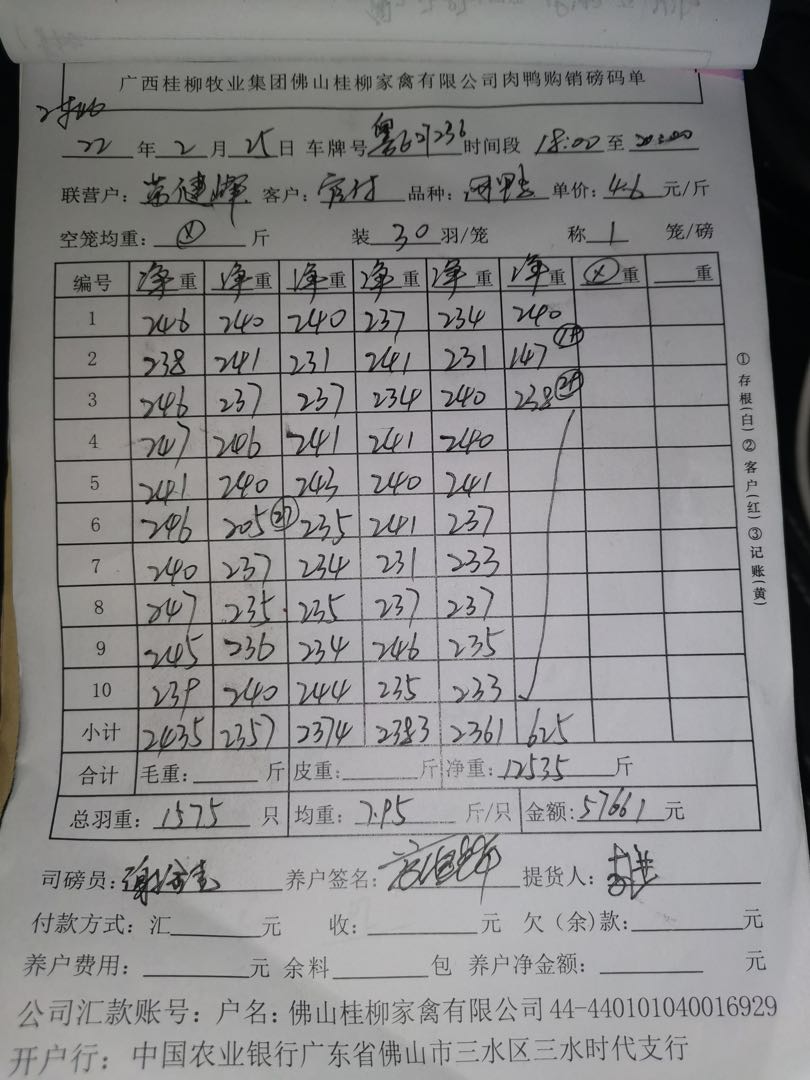 广西桂柳牧业集团佛山桂柳家禽有限公司肉鸭购销磅码单
22 年 2 月 25 日 车牌号 时间段 18:00 至
联营户: 客户: 品种: 单价: 4.6 元/斤
空笼均重: 斤 装 30 羽/笼 称 1 笼/磅
编号 净重 净重 净重 净重 净重 净重 重 重
1 246 240 240 237 234 240
2 238 241 231 241 231 147
3 246 237 237 234 240 238
4 247 246 241 241 240
5 241 240 243 240 241
6 246 205 235 241 237
7 240 237 234 231 233
8 247 235 235 237 237
9 245 236 234 246 235
10 239 240 244 235 233
小计 2435 2357 2374 2383 2361 625
合计 毛重: 斤 皮重: 斤 净重: 12535 斤
总羽重: 1575 只 均重: 7.95 斤/只 金额: 57661 元
司磅员: 养户签名: 提货人:
付款方式: 汇 元 收: 元 欠(余)款: 元
养户费用: 元 余料 包 养户净金额: 元
公司汇款账号: 户名: 佛山桂柳家禽有限公司 44-440101040016929
开户行: 中国农业银行广东省佛山市三水区三水时代支行
①存根(白)②客户(红)③记账(黄)